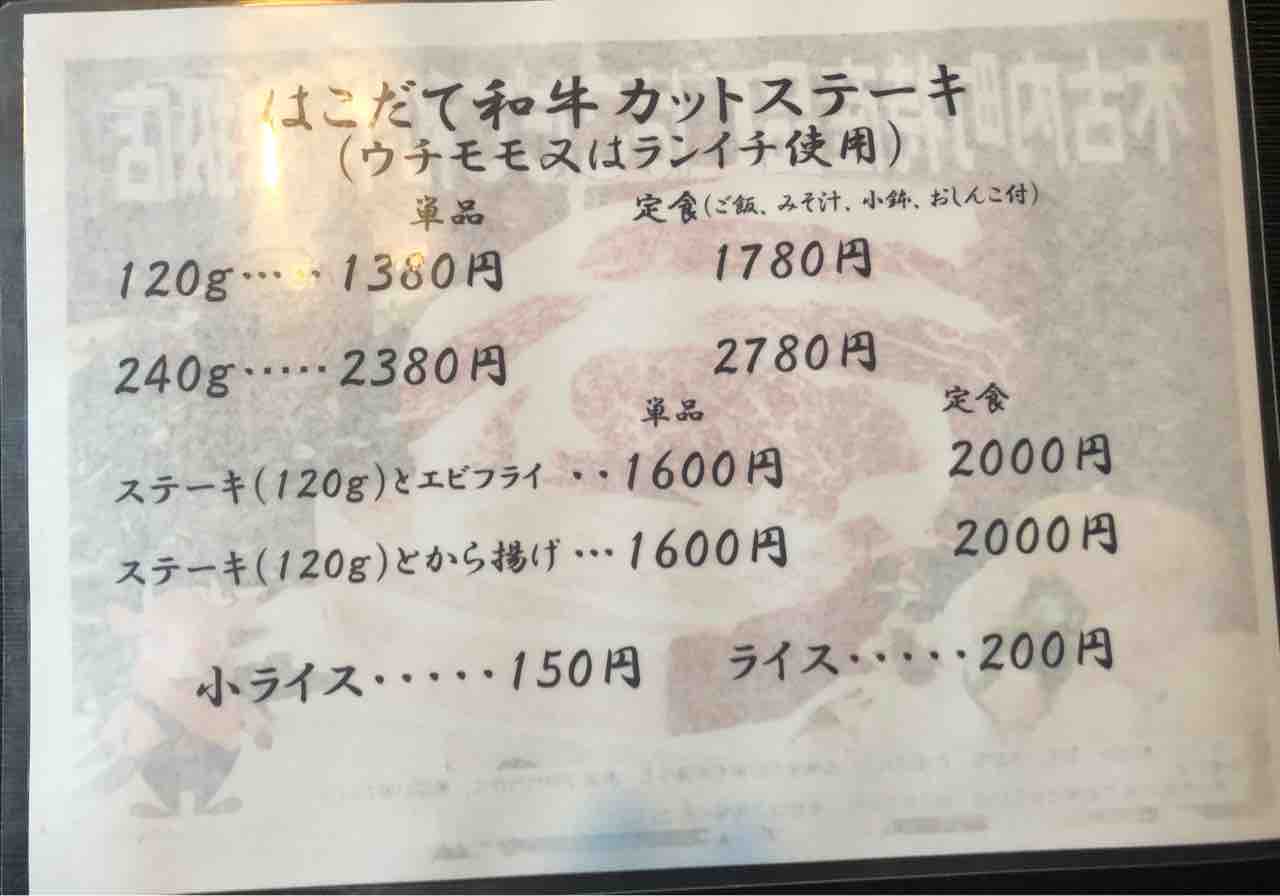 はこだて和牛カットステーキ
(ウチモモ又はランイチ使用)
単品 定食(ご飯、みそ汁、小鉢、おしんこ付)
120g・・・・・1380円 1780円
240g・・・・・2380円 2780円
単品 定食
ステーキ(120g)とエビフライ ・・1600円 2000円
ステーキ(120g)とから揚げ・・・1600円 2000円
小ライス・・・・・150円 ライス・・・・・200円